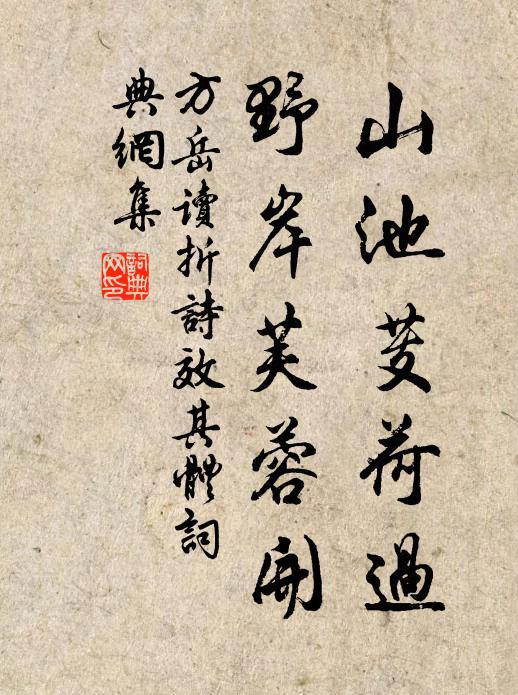 山池芰荷過
野岸芙蓉開
方岳讀折詩效其體詞
典網集
詞典
网印